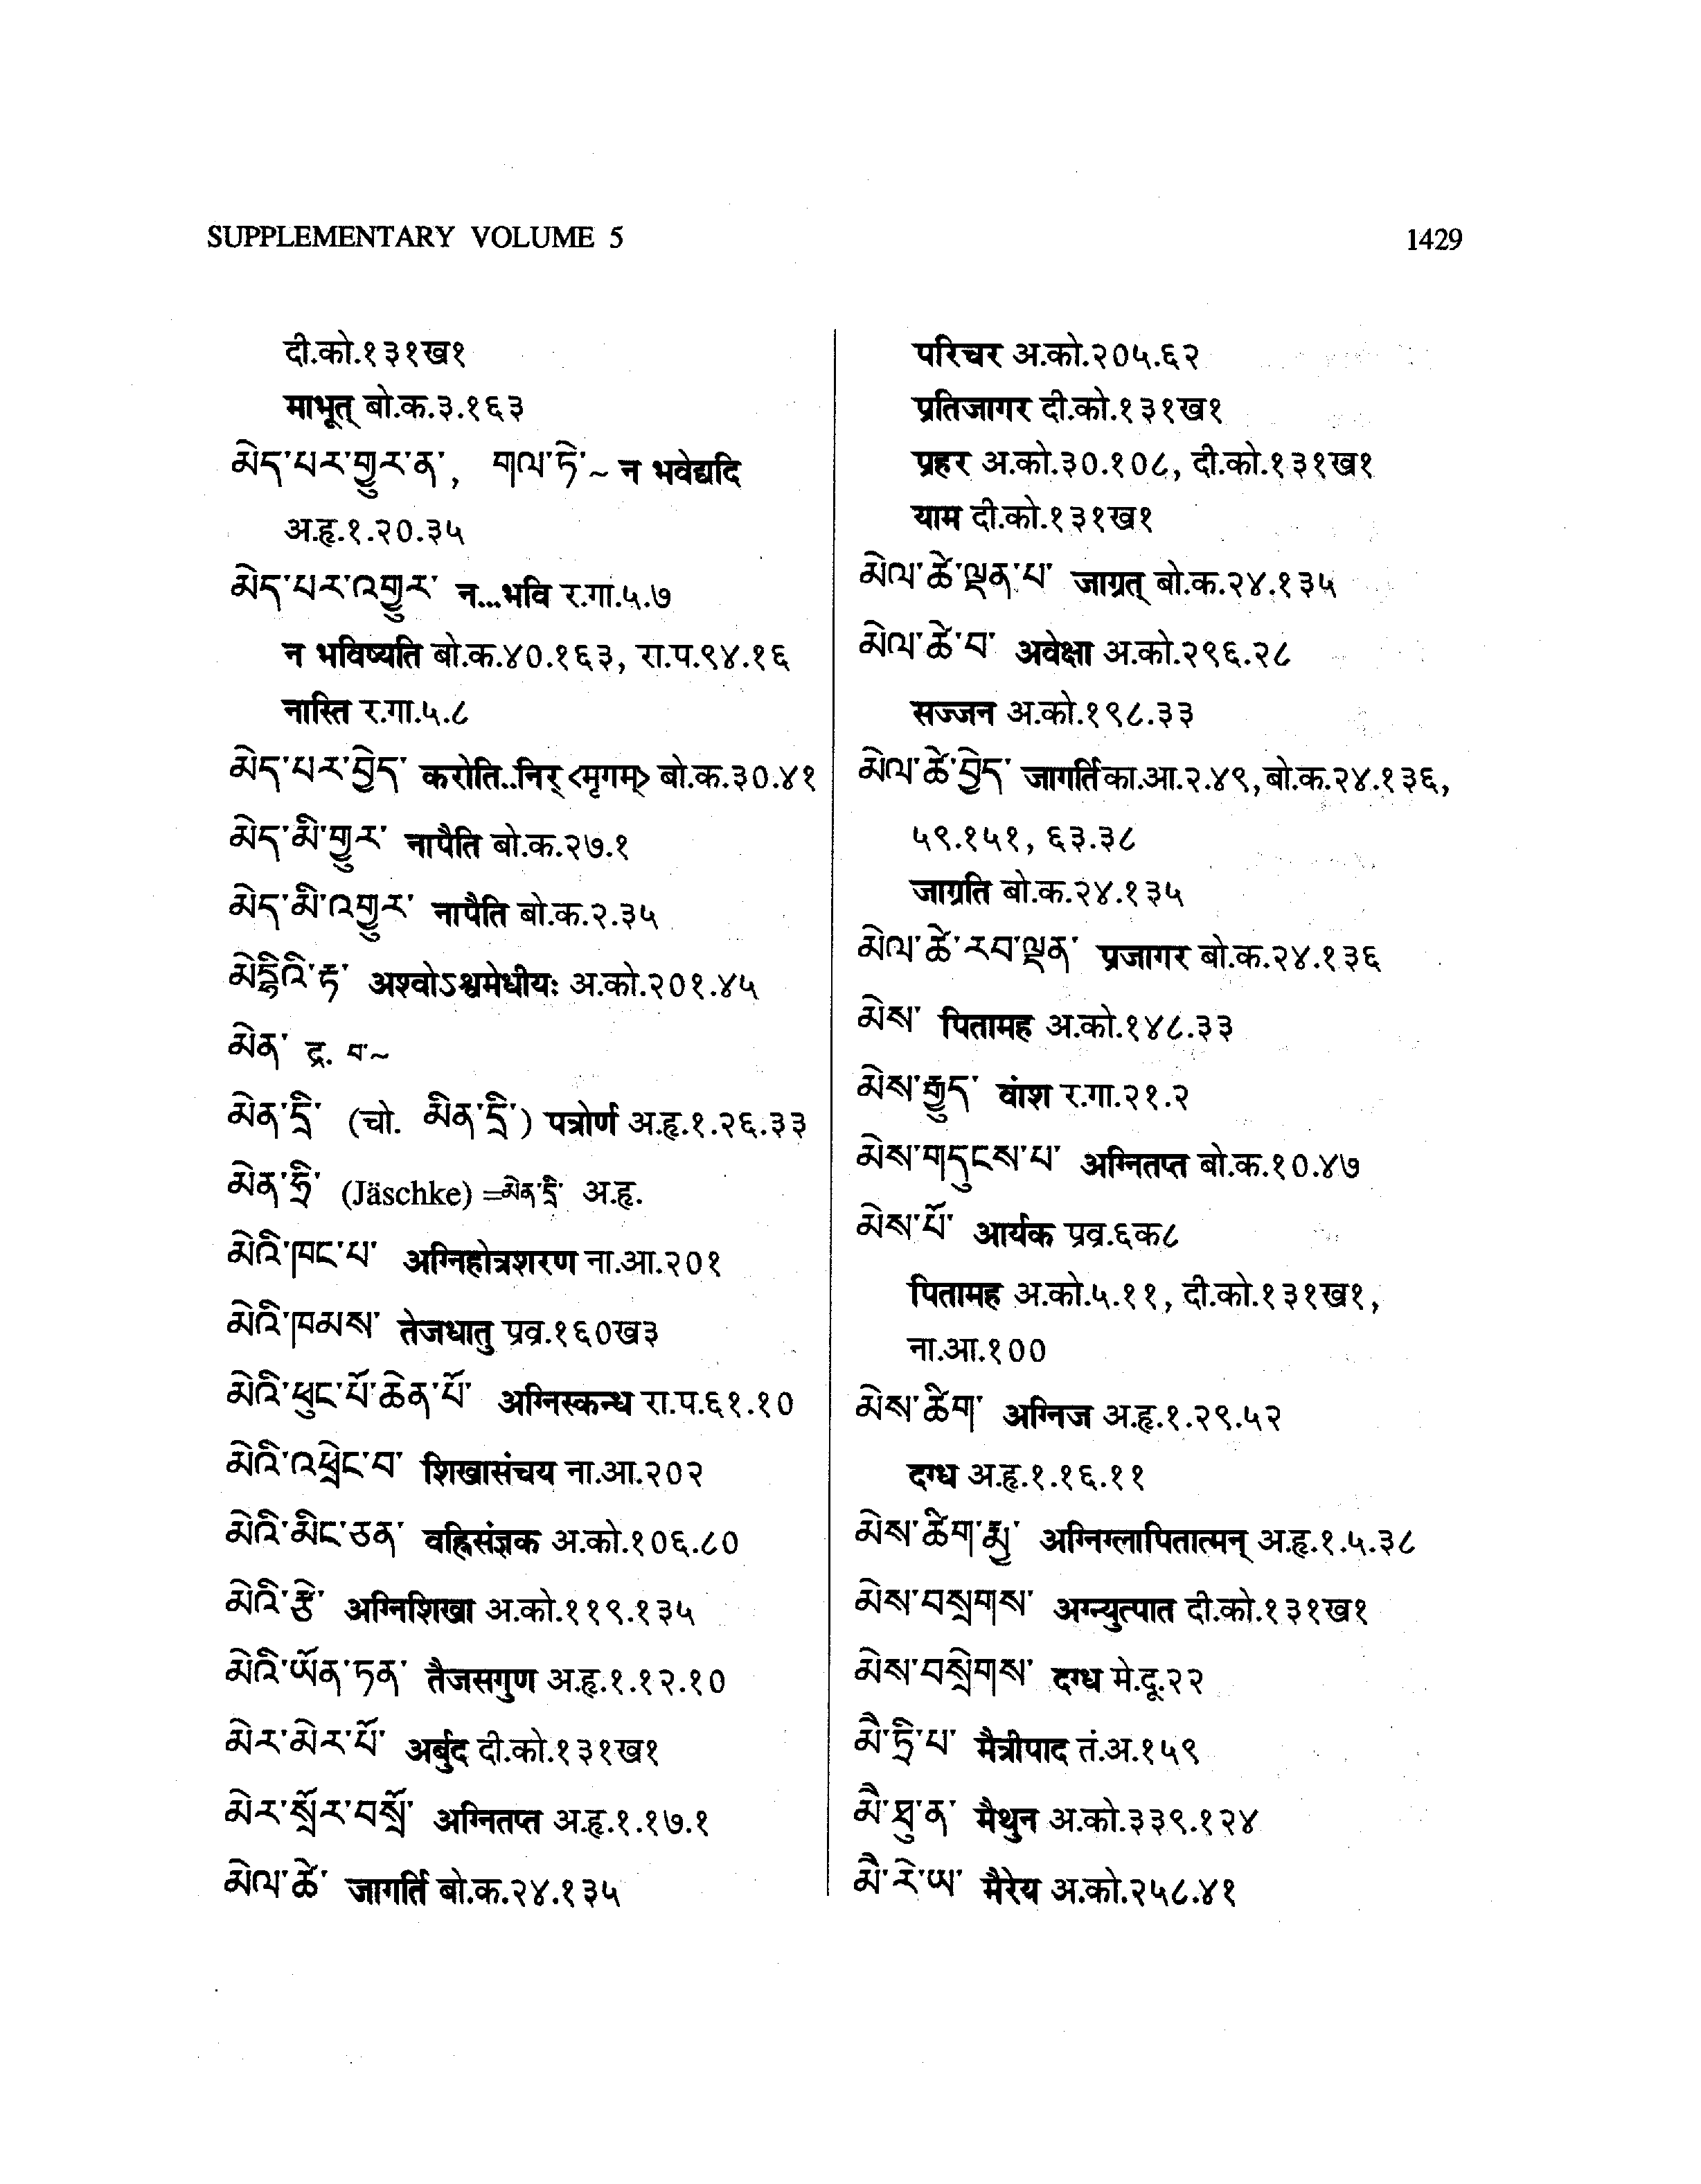 SUPPLEMENTARY VOLUME 5
1429
दी.को.१३१ख१
माभूत् बो.क.३.१६३
མེད་པར་གྱུར་ན་, གལ་ཏེ་~ न भवेद्यदि
अ.हृ.१.२०.३५
མེད་པར་འགྱུར་ न...भवि र.गा.५.७
न भविष्यति बो.क.४०.१६३, रा.प.९४.१६
नास्ति र.गा.५.८
མེད་པར་བྱེད་ करोति..निर् <मृगम्> बो.क.३०.४१
མེད་མི་གྱུར་ नापैति बो.क.२७.१
མེད་མི་འགྱུར་ नापैति बो.क.२.३५
མེདྷིའི་རྟ་ अश्वोऽश्वमेधीयः अ.को.२०१.४५
མེན་ द्र. བ་~
མེན་དྲི་ (चो. མིན་དྲི་) पत्रोर्ण अ.हृ.१.२६.३३
མེན་ཧྲི་ (Jäschke) =མེན་དྲི་ अ.हृ.
མེའི་ཁང་པ་ अग्निहोत्रशरण ना.आ.२०१
མེའི་ཁམས་ तेजधातु प्रव्र.१६०ख३
མེའི་ཕུང་པོ་ཆེན་པོ་ अग्निस्कन्ध रा.प.६१.१०
མེའི་འཕྲེང་བ་ शिखासंचय ना.आ.२०२
མེའི་མིང་ཅན་ वह्निसंज्ञक अ.को.१०६.८०
མེའི་རྩེ་ अग्निशिखा अ.को.११९.१३५
མེའི་ཡོན་ཏན་ तैजसगुण अ.हृ.१.१२.१०
མེར་མེར་པོ་ अर्बुद दी.को.१३१ख१
མེར་སྲོར་བསྲོ་ अग्नितप्त अ.हृ.१.१७.१
མེལ་ཚེ་ जागर्ति बो.क.२४.१३५
परिचर अ.को.२०५.६२
प्रतिजागर दी.को.१३१ख१
प्रहर अ.को.३०.१०८, दी.को.१३१ख१
याम दी.को.१३१ख१
མེལ་ཚེ་ལྡན་པ་ जाग्रत् बो.क.२४.१३५
མེལ་ཚེ་བ་ अवेक्षा अ.को.२९६.२८
सज्जन अ.को.१९८.३३
མེལ་ཚེ་བྱེད་ जागर्ति का.आ.२.४९, बो.क.२४.१३६,
५९.१५१, ६३.३८
जाग्रति बो.क.२४.१३५
མེལ་ཚེ་རབ་ལྡན་ प्रजागर बो.क.२४.१३६
མེས་ पितामह अ.को.१४८.३३
མེས་རྒྱུད་ वांश र.गा.२१.२
མེས་གདུངས་པ་ अग्नितप्त बो.क.१०.४७
མེས་པོ་ आर्यक प्रव्र.६क८
पितामह अ.को.५.११, दी.को.१३१ख१,
ना.आ.१००
མེས་ཚིག་ अग्निज अ.हृ.१.२९.५२
दग्ध अ.हृ.१.१६.११
མེས་ཚིག་རྨྱ་ अग्निग्लापितात्मन् अ.हृ.१.५.३८
མེས་བསྲགས་ अग्न्युत्पात दी.को.१३१ख१
མེས་བསྲེགས་ दग्ध मे.दू.२२
མཻ་ཏྲི་པ་ मैत्रीपाद तं.अ.१५९
མཻ་ཐུ་ན་ मैथुन अ.को.३३९.१२४
མཻ་རེ་ཡ་ मैरेय अ.को.२५८.४१